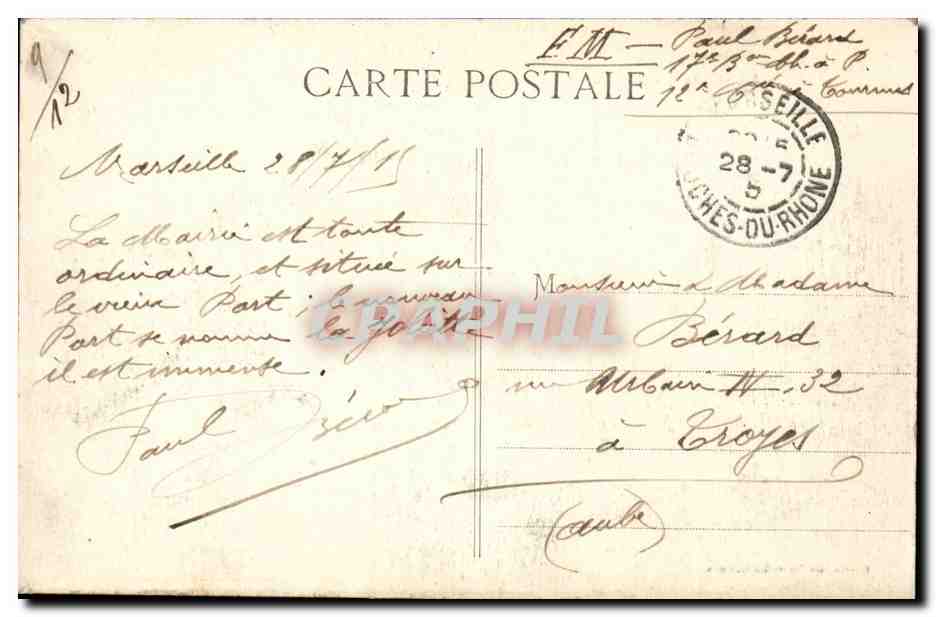 9/12
F M — Paul Bérard
17e Bon Ch. à P.
12e Cie à Tournus
CARTE POSTALE
MARSEILLE
28 -7
5
BOUCHES-DU-RHONE
Marseille 28/7/15
La Mairie est toute
ordinaire, et située sur
le vieux Port ; le nouveau
Port se nomme la Joliette
il est immense.
Paul Bérard
Monsieur & Madame
Bérard
rue Urbain IV. 32
à Troyes
(Aube)
CPAPHIL